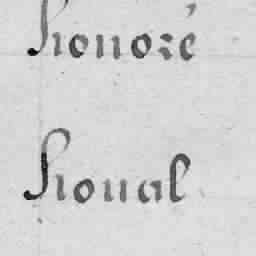 honoré
houal